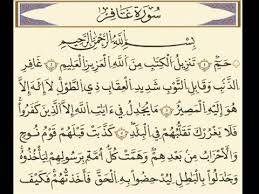 سُورَةُ غَافِرٍ
بِسْمِ اللَّهِ الرَّحْمَٰنِ الرَّحِيمِ
حمٓ ۝ تَنزِيلُ الْكِتَٰبِ مِنَ اللَّهِ الْعَزِيزِ الْعَلِيمِ ۝ غَافِرِ
الذَّنۢبِ وَقَابِلِ التَّوْبِ شَدِيدِ الْعِقَابِ ذِى الطَّوْلِ لَآ إِلَٰهَ إِلَّا
هُوَ إِلَيْهِ الْمَصِيرُ ۝ مَا يُجَٰدِلُ فِىٓ ءَايَٰتِ اللَّهِ إِلَّا الَّذِينَ كَفَرُوا۟
فَلَا يَغْرُرْكَ تَقَلُّبُهُمْ فِى الْبِلَٰدِ ۝ كَذَّبَتْ قَبْلَهُمْ قَوْمُ نُوحٍ
وَالْأَحْزَابُ مِنۢ بَعْدِهِمْ وَهَمَّتْ كُلُّ أُمَّةٍۭ بِرَسُولِهِمْ لِيَأْخُذُوهُ
وَجَٰدَلُوا۟ بِالْبَٰطِلِ لِيُدْحِضُوا۟ بِهِ الْحَقَّ فَأَخَذْتُهُمْ فَكَيْفَ